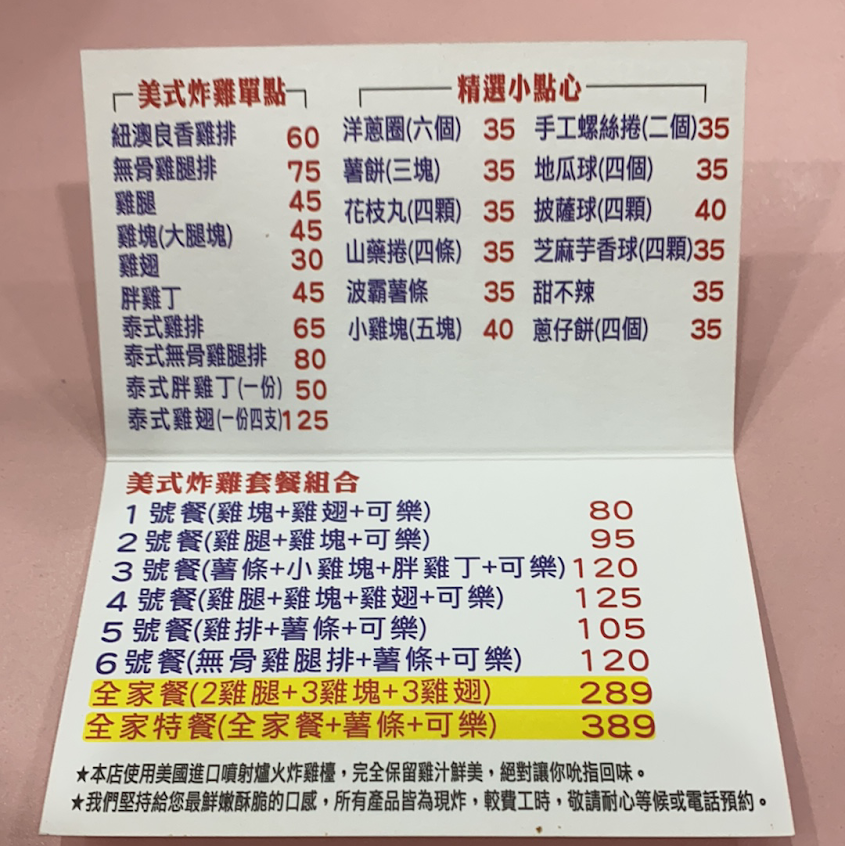 美式炸雞單點
紐澳良香雞排 60
無骨雞腿排 75
雞腿 45
雞塊(大腿塊) 45
雞翅 30
胖雞丁 45
泰式雞排 65
泰式無骨雞腿排 80
泰式胖雞丁(一份) 50
泰式雞翅(一份四支) 125
精選小點心
洋蔥圈(六個) 35
薯餅(三塊) 35
花枝丸(四顆) 35
山藥捲(四條) 35
波霸薯條 35
小雞塊(五塊) 40
手工螺絲捲(二個) 35
地瓜球(四個) 35
披薩球(四顆) 40
芝麻芋香球(四顆) 35
甜不辣 35
蔥仔餅(四個) 35
美式炸雞套餐組合
1 號餐(雞塊+雞翅+可樂) 80
2 號餐(雞腿+雞塊+可樂) 95
3 號餐(薯條+小雞塊+胖雞丁+可樂) 120
4 號餐(雞腿+雞塊+雞翅+可樂) 125
5 號餐(雞排+薯條+可樂) 105
6 號餐(無骨雞腿排+薯條+可樂) 120
全家餐(2雞腿+3雞塊+3雞翅) 289
全家特餐(全家餐+薯條+可樂) 389
★本店使用美國進口噴射爐火炸雞檯，完全保留雞汁鮮美，絕對讓你吮指回味。
★我們堅持給您最鮮嫩酥脆的口感，所有產品皆為現炸，較費工時，敬請耐心等候或電話預約。